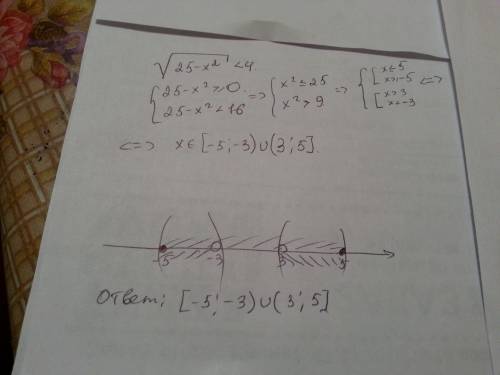 √25-x² < 4.
{ 25-x² ≥ 0. 25-x² < 16 => { x² ≤ 25 x² > 9 => { [ x ≤ 5 x ≥ -5 [ x > 3 x < -3 <=>
<=> x ∈ [-5; -3) ∪ (3; 5].
-5 -3 3
Ответ: [-5; -3) ∪ (3; 5]